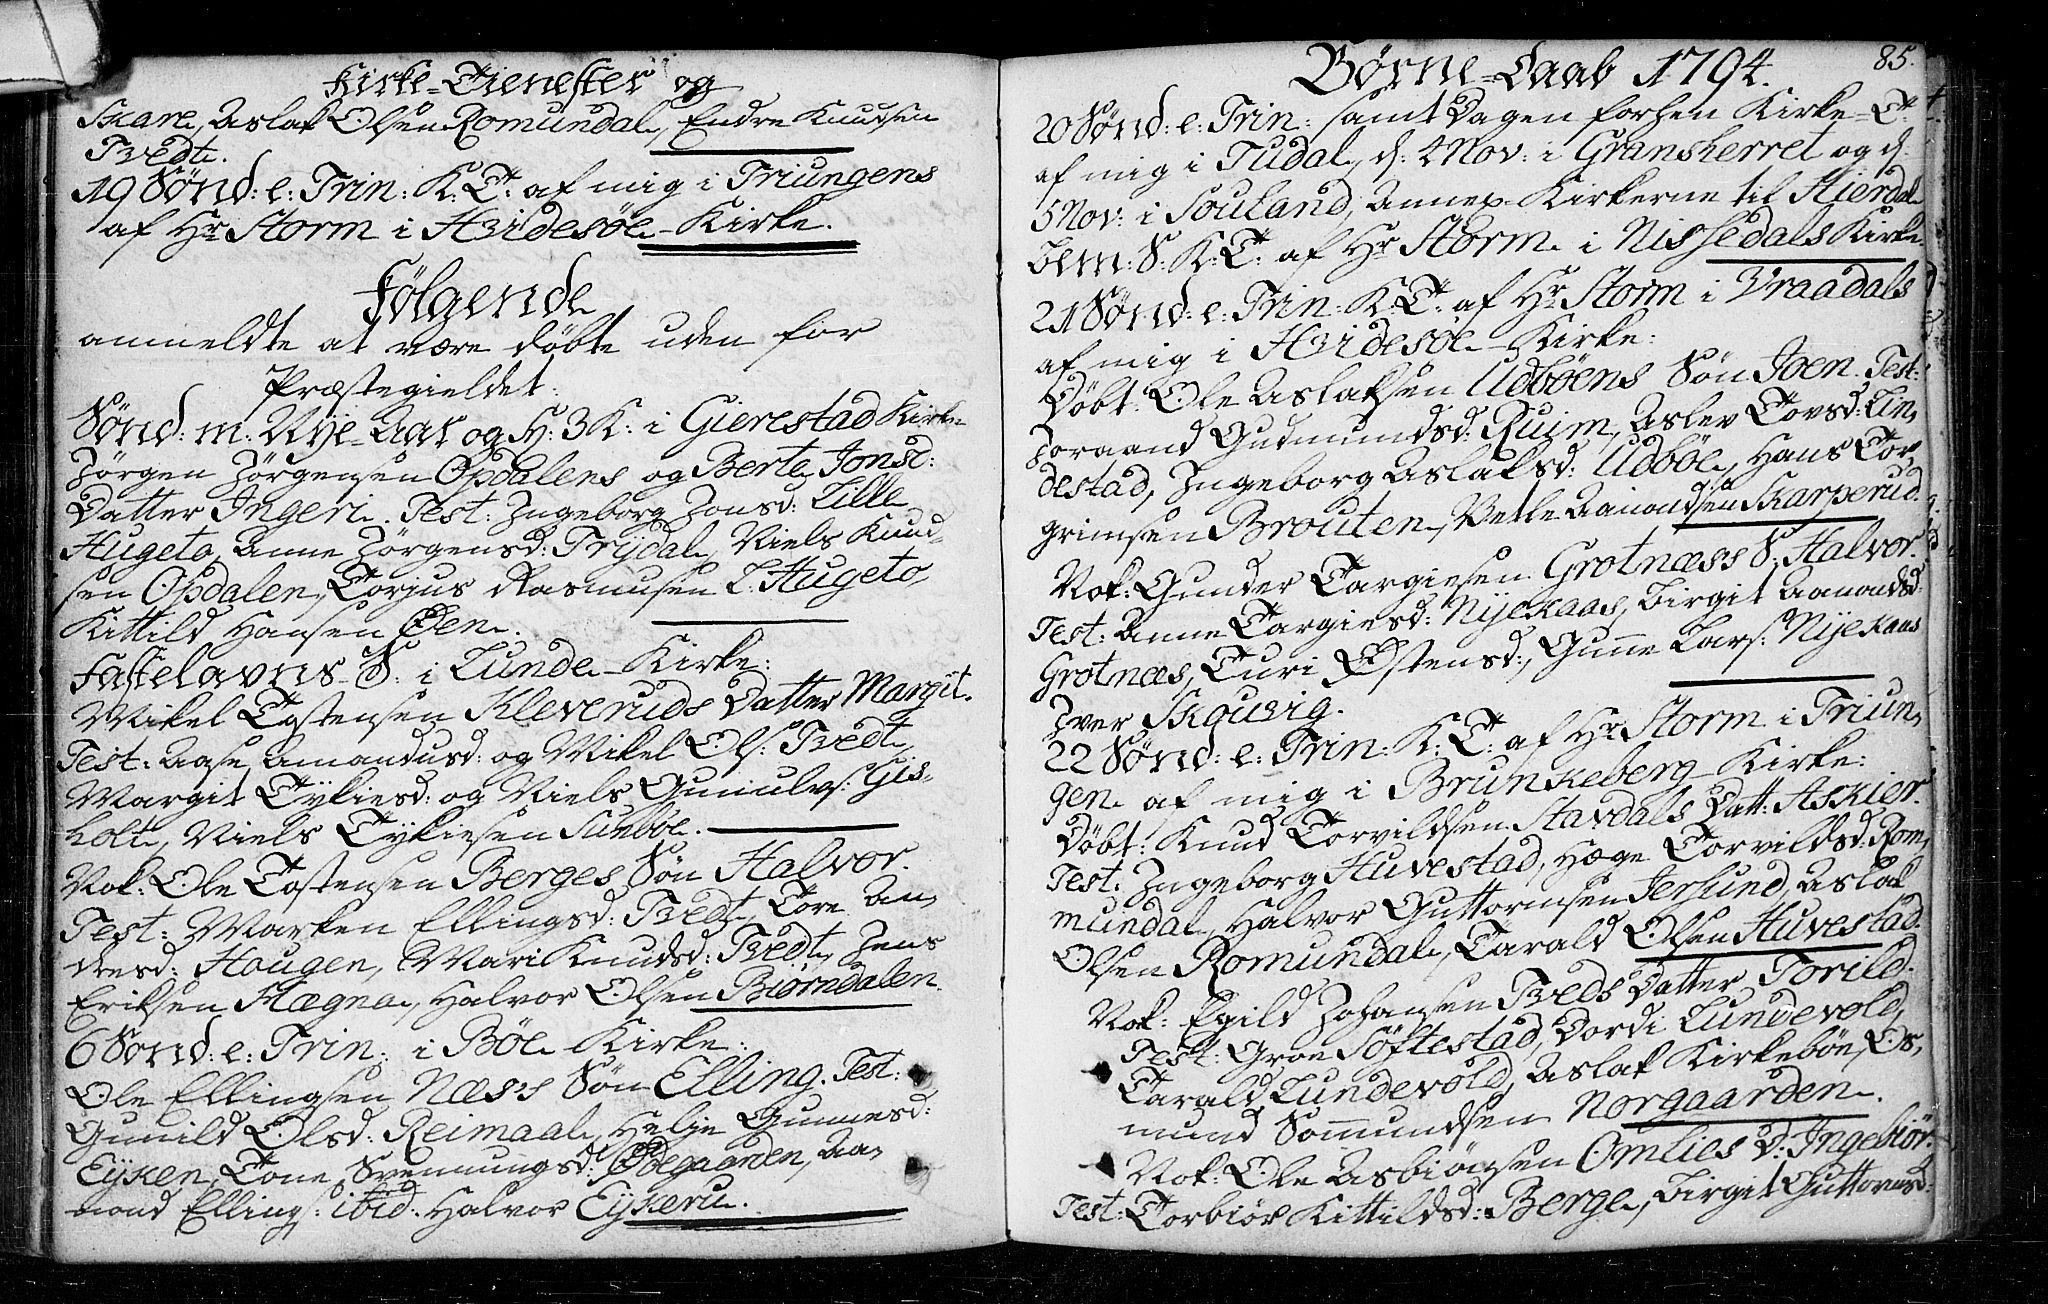 Kirke-Tienester og
Skare, Aslak Olsen Romundal, Endre Knudsen
Tvedt.
19 Sønd: e: Trin: K: T: af mig i Triungens
af Hr Storm i Hvidesøe-Kirke.
Følgende
anmeldte at være døbte uden for
Præstegieldet:
Sønd: m: Nye-Aar og H: 3 K: i Gierestad Kirke
Jørgen Jørgensen Opdalens og Berte Jonsd:
Datter Ingeri. Test: Ingeborg Jonsd: Lille
Hugeto, Anne Jørgensd: Trydal, Niels Knud-
sen Opdalen, Torjus Rasmusen L: Hugeto
Kittild Hansen Øen.
Fastelavns-S: i Lunde-Kirke:
Mikel Tostensen Kleveruds Datter Margit.
Test: Aase Amandusd: og Mikel Ols: Tvedt,
Margit Tykiesd: og Niels Gunulvs: Gis-
holt, Niels Tykiesen Sunbøe.
Nok: Ole Tostensen Berges Søn Halvor.
Test: Marken Ellingsd: Tvedt, Tore An,
dresd: Hougen, Mari Knudsd: Tvedt, Jens
Eriksen Hægna, Halvor Olsen Biørndalen.
6 Sønd: e: Trin: i Bøe Kirke:
Ole Ellingsen Næss Søn Elling. Test:
Gunild Olsd: Reimaal, Helje Gunnesd:
Eyken, Tone Svennungsd: Ødegaarden, Aa,
mond Ellings: ibid. Halvor Eykeru.
Børne-Daab 1794.
85.
20 Sønd: e: Trin: samt Dagen forhen Kirke-T:
af mig i Tudal, d: 4 Nov: i Gransherret og d:
5 Nov: i Souland, Annex-Kirkerne til Hierdal
bem: S: K: T: af Hr Storm i Nissedals Kirke
21 Sønd: e: Trin: K: T: af Hr Storm i Vraadals
af mig i Hvidesøe-Kirke:
Døbt: Ole Aslaksen Udbøens Søn Joen. Test:
Joraand Gudmundsd: Ruim, Aslev Tovsd: Lin,
destad, Ingeborg Aslaksd: Udbøe, Hans Tor,
grimsen Brouten, Vetle Aamondsen Skarperud.
Nok: Gunder Targiesen Grotnæss S: Halvor.
Test: Anne Targiesd: Nyekaas, Birgit Aamondsd:
Grotnæs, Turi Østensd:, Gunne Lars: Nyekaas
Iver Skouvig.
22 Sønd: e: Trin: K: T: af Hr Storm i Triun,
gen af mig i Brunkeberg-Kirke:
Døbt: Knud Torvildsen Stavdals Datt: Askier.
Test: Ingeborg Huvestad, Hæge Torvildsd: Rom,
mundal, Halvor Guttormsen Jerlund, Aslak
Olsen Romundal, Tarald Olsen Huvestad.
Nok: Egild Johansen Tveds Datter Torild.
Test: Groe Søftestad, Dordi Lundevold,
Tarald Lundevold, Aslak Kirkebøe, Os,
mund Sommundsen Norgaarden.
Nok: Ole Asbiønsen Omlies D: Ingebiør.
Test: Torbiør Kittildsd: Berge, Birgit Guttormsd: